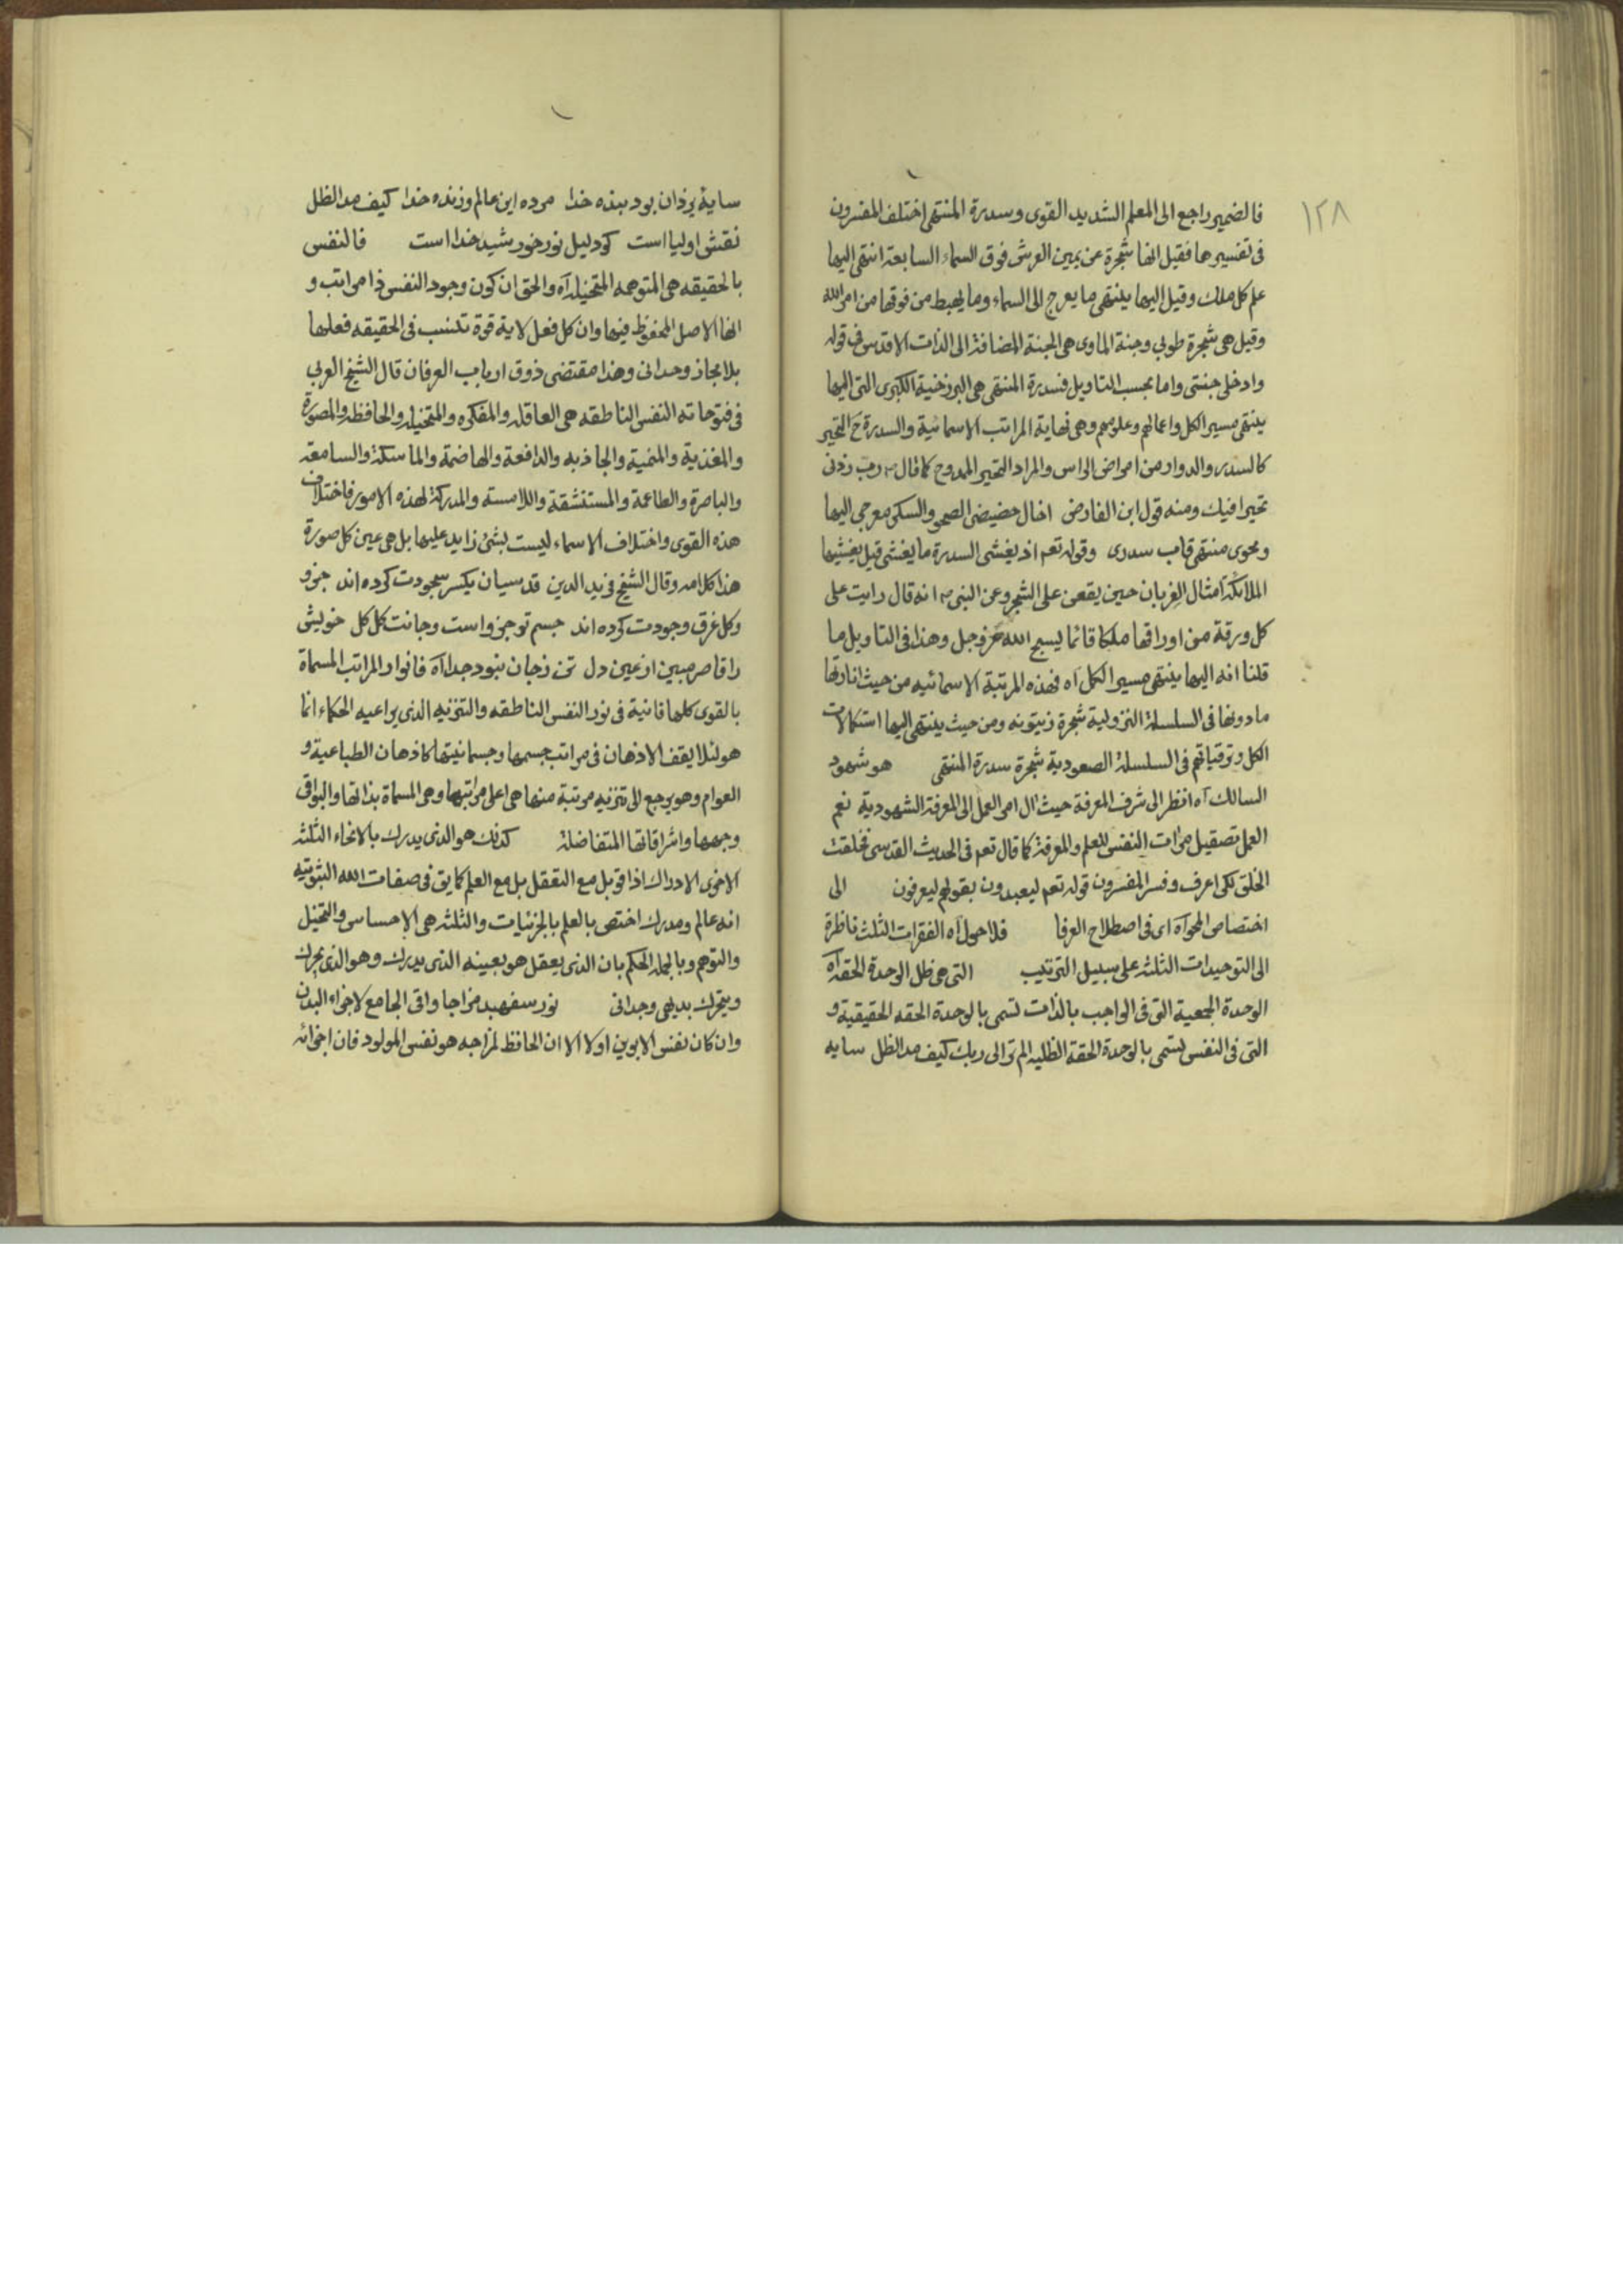 ١٢٨
فالضمير راجع الى المعلم الشديد القوى وسدرة المنتهى اختلف المفسرون
فى تفسيرها فقيل انها شجرة عن يمين العرش فوق السماء السابعة انتهى اليها
علم كل ملك وقيل اليها ينتهى ما يعرج الى السماء وما يهبط من فوقها من امر الله
وقيل هى شجرة طوبى وجنة الماوى هى الجنة المضافة الى الذات الاقدس فى قوله
وادخلى جنتى واما بحسب التاويل فسدرة المنتهى هى البرزخية الكبرى التى اليها
ينتهى مسير الكل واعمالهم وعلومهم وهى نهاية المراتب الاسمائية والسدرة ح التحير
كالسدر والدوار من امراض الراس والمراد التحير الممدوح كما قال رب زدنى
تحيرا فيك ومنه قول ابن الفارض اخال حضيضى الصحو والسكر معرجى اليها
ومحوى منتهى قاب سدرى وقوله تعم اذ يغشى السدرة ما يغشى قيل يغشيها
الملائكة امثال الغربان حين يقعن على الشجر وعن النبى انه قال رايت على
كل ورقة من اوراقها ملكا قائما يسبح الله عز وجل وهذا فى التاويل ما
قلنا انه اليها ينتهى مسير الكل آه فهذه المرتبة الاسمائيه من حيث انارتها
مادونها فى السلسلة النزولية شجرة زيتونه ومن حيث ينتهى اليها استكمالات
الكل وترقياتهم فى السلسلة الصعودية شجرة سدرة المنتهى هو شهود
السالك آه انظر الى شرف المعرفة حيث ال امر العمل الى المعرفة الشهودية نعم
العمل تصقيل مرات النفس للعلم والمعرفة كما قال تعم فى الحديث القدسى فخلقت
الخلق لكى اعرف وفسر المفسرون قوله تعم ليعبدون بقولهم ليعرفون الى
اختصاص المحو آه اى فى اصطلاح العرفا فلا حول آه الفقرات الثلث ناظرة
الى التوحيدات الثلثه على سبيل الترتيب التى هى ظل الوحدة الحقه آه
الوحدة الجمعية التى فى الواجب بالذات تسمى بالوحدة الحقه الحقيقية و
التى فى النفس تسمى بالوحدة الحقة الظليه الم تر الى ربك كيف مد الظل سايه
سايۀ يزدان بود بنده خدا مرده اين عالم وزنده خدا كيف مد الظل
نقش اوليا است كو دليل نور خورشيد خدا است فالنفس
بالحقيقه هى المتوهمه المتخيله آه والحق ان كون وجود النفس ذا مراتب و
انها الاصل المحفوظ فيها وان كل فعل لاية قوة تنسب فى الحقيقه فعلها
بلا مجاز وجدانى وهذا مقتضى ذوق ارباب العرفان قال الشيخ العربى
فى فتوحاته النفس الناطقه هى العاقله والمفكره والمتخيله والحافظه والمصورة
والمغذية والمنمية والجاذبه والدافعة والهاضمة والماسكة والسامعة
والباصرة والطاعمة والمستنشقة واللامسة والمدركة لهذه الامور فاختلاف
هذه القوى واختلاف الاسماء ليست بشئ زايد عليها بل هى عين كل صورة
هذا كلامه وقال الشيخ فريد الدين قدسيان يكسر سجودت كرده اند جزو
وكل غرق وجودت كرده اند جسم تو جزو است وجانت كل كل خويش
را قاصر مبين از عين دل تن زجان نبود جدا آه فانوار المراتب المسماة
بالقوى كلها فانية فى نور النفس الناطقه والتنزيه الذى يراعيه الحكماء انما
هو لئلا يقف الاذهان فى مراتب جسمها وجسمانيتها كاذهان الطباعية و
العوام وهو يرجع الى تنزيه مرتبة منها هى اعلى مراتبها وهى المسماة بذاتها والبواقى
وجهها واشراقاتها المتفاضلة كذلك هو الذى يدرك بالانحاء الثلثه
الاخرى الادراك اذا قوبل مع التعقل بل مع العلم كما يق فى صفات الله الثبوتيه
انه عالم ومدرك اختص بالعلم بالجزئيات والثلثه هى الاحساس والتخيل
والتوهم وبالجملة الحكم بان الذى يعقل هو بعينه الذى يدرك وهو الذى يحرك
ويتحرك بديهى وجدانى نور سفهبد مزاجا واقى الجامع لاجزاء البدن
وان كان نفس الابوين اولا الا ان الحافظ لمزاجه هو نفس المولود فان اجزائه